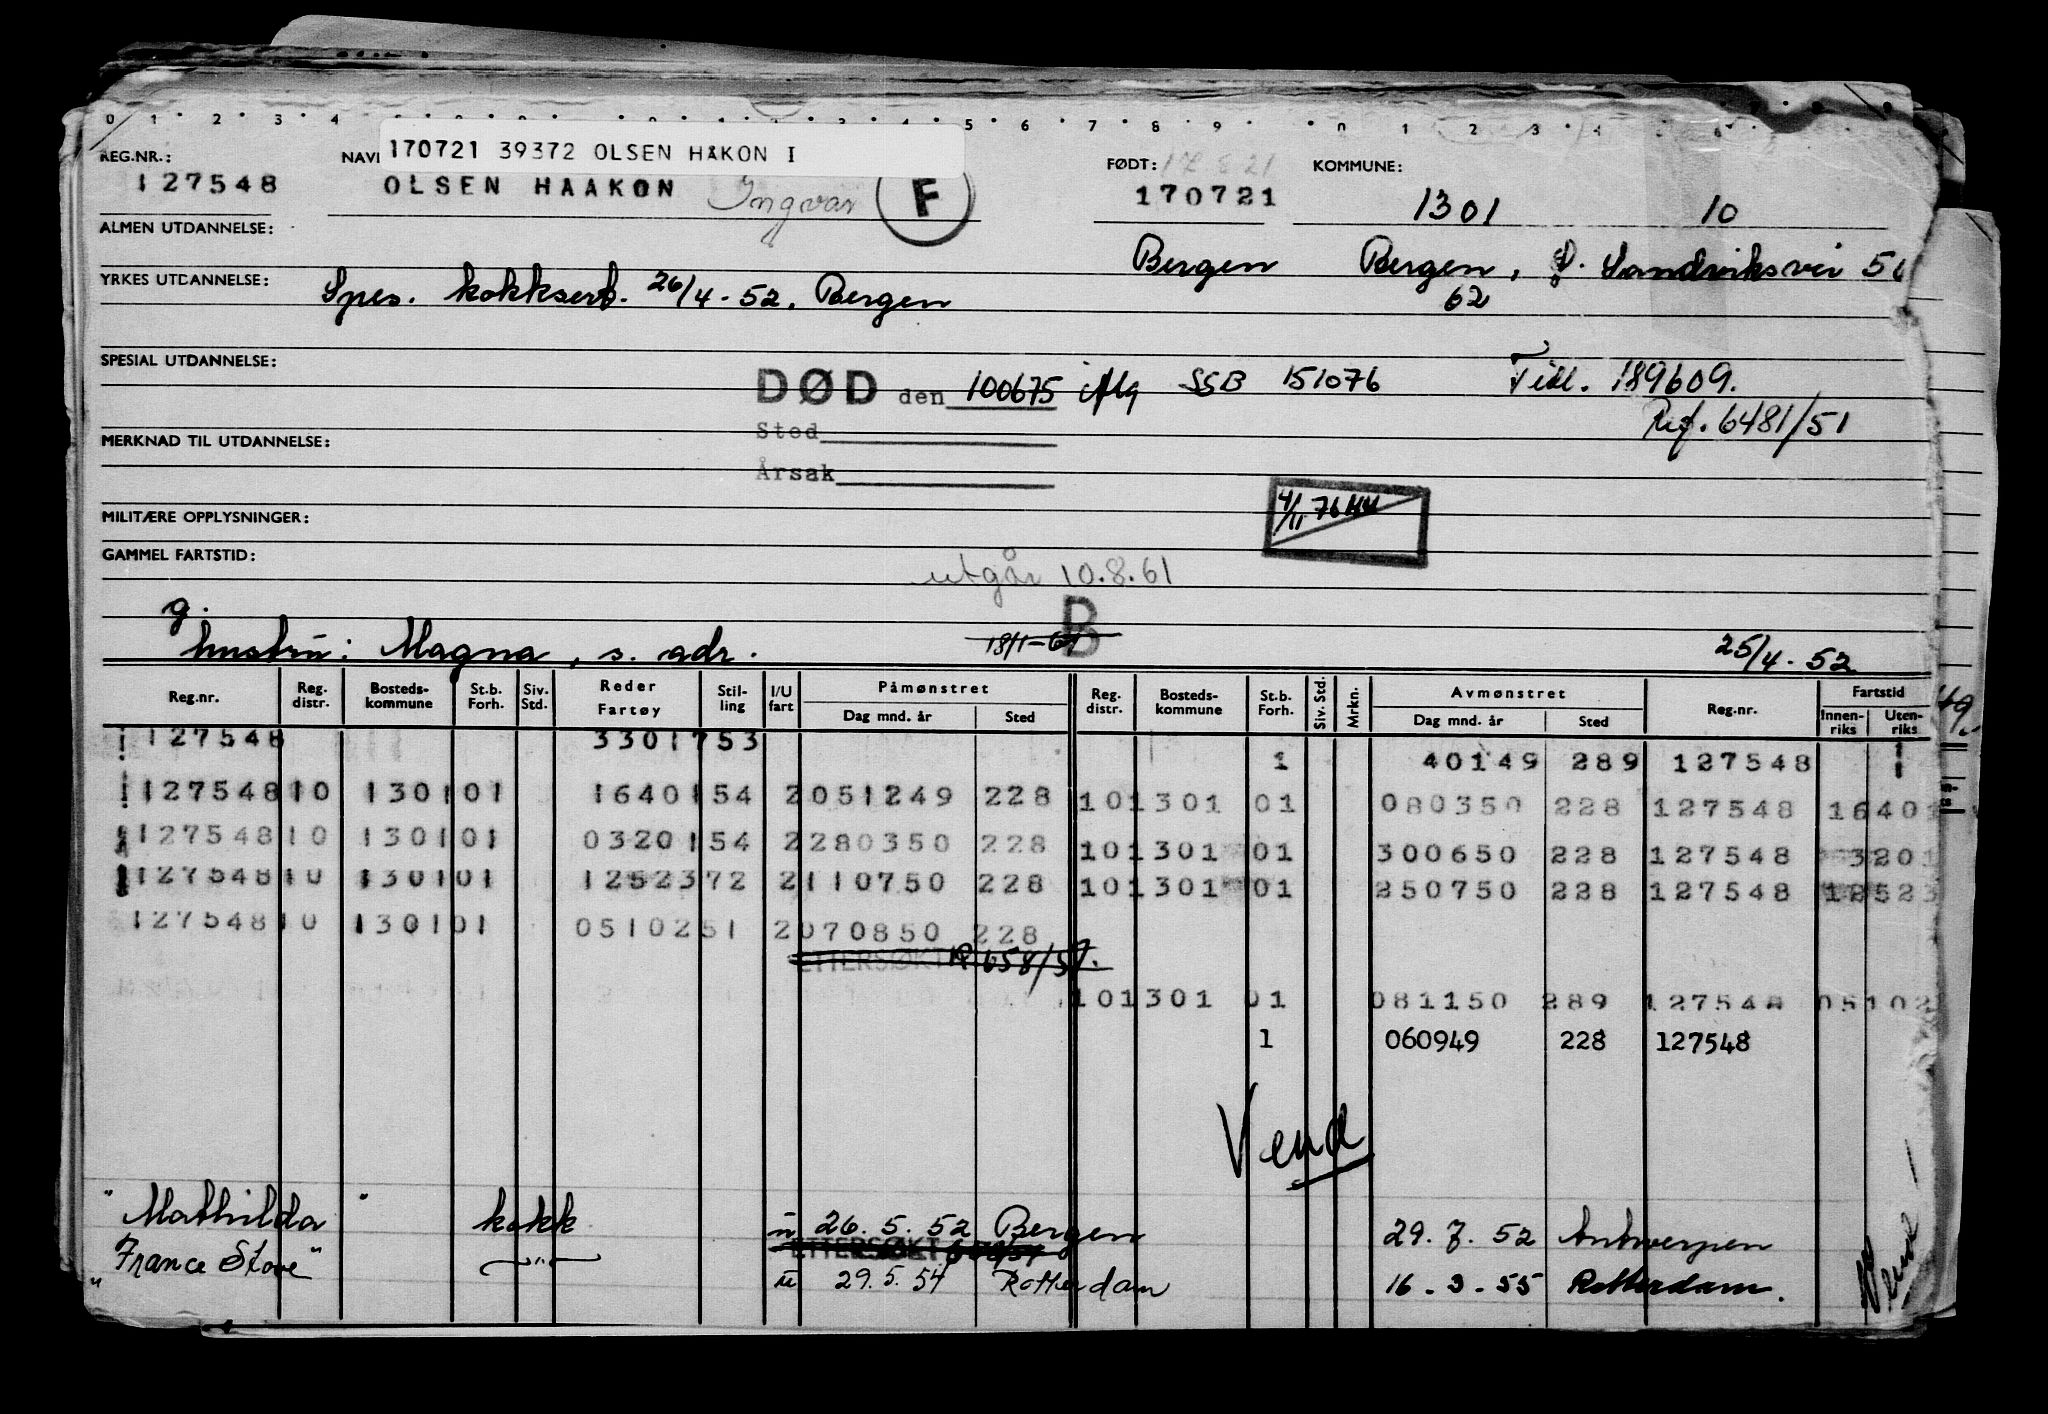 0 1 2 3 4 5 6 7 8 9 n 1 2 3 4
170721 39372 OLSEN HÅKON I
REG.NR.: NAV FØDT: 17.8.21 KOMMUNE:
127548 OLSEN HAAKON Ingvar F 170721 1301 10
ALMEN UTDANNELSE:
Bergen Bergen, Sandviksvei 56
YRKES UTDANNELSE: Spes. kokksert. 26/4-52. Bergen 62
SPESIAL UTDANNELSE:
DØD den 100675 iflg SSB 151076 Tidl. 189609.
Ref. 6481/51
Sted
MERKNAD TIL UTDANNELSE:
Årsak
4/11 76
MILITÆRE OPPLYSNINGER:
GAMMEL FARTSTID:
utgår 10.8.61
g. B
hustru: Magna, s. adr. 18/1-61 25/4-52
Reg.nr. Reg. distr. Bosteds-kommune St.b. Forh. Siv. Std. Reder Fartøy Stil-ling I/U fart Påmønstret Dag mnd. år Sted Reg. distr. Bosteds-kommune St.b. Forh. Siv. Std. Mrkn. Avmønstret Dag mnd. år Sted Reg.nr. Fartstid Innen-riks Uten-riks
127548 3301753 1 40149 289 127548 1
127548 10 1301 01 1640154 2 051249 228 10 1301 01 080350 228 127548 16401
127548 10 1301 01 0320154 2 280350 228 10 1301 01 300650 228 127548 3201
127548 10 1301 01 1252372 2 110750 228 10 1301 01 250750 228 127548 12523
127548 10 1301 01 0510251 2 070850 228
ETTERSØKT 658/57.
10 1301 01 081150 289 127548 05102
1 060949 228 127548
Vend
"Mathilda" kokk u 26.5.52 Bergen 29.7.52 Antwerpen
ETTERSØKT
"France Stove" —"— u 29.5.54 Rotterdam 16-3-55 Rotterdam.
Vend